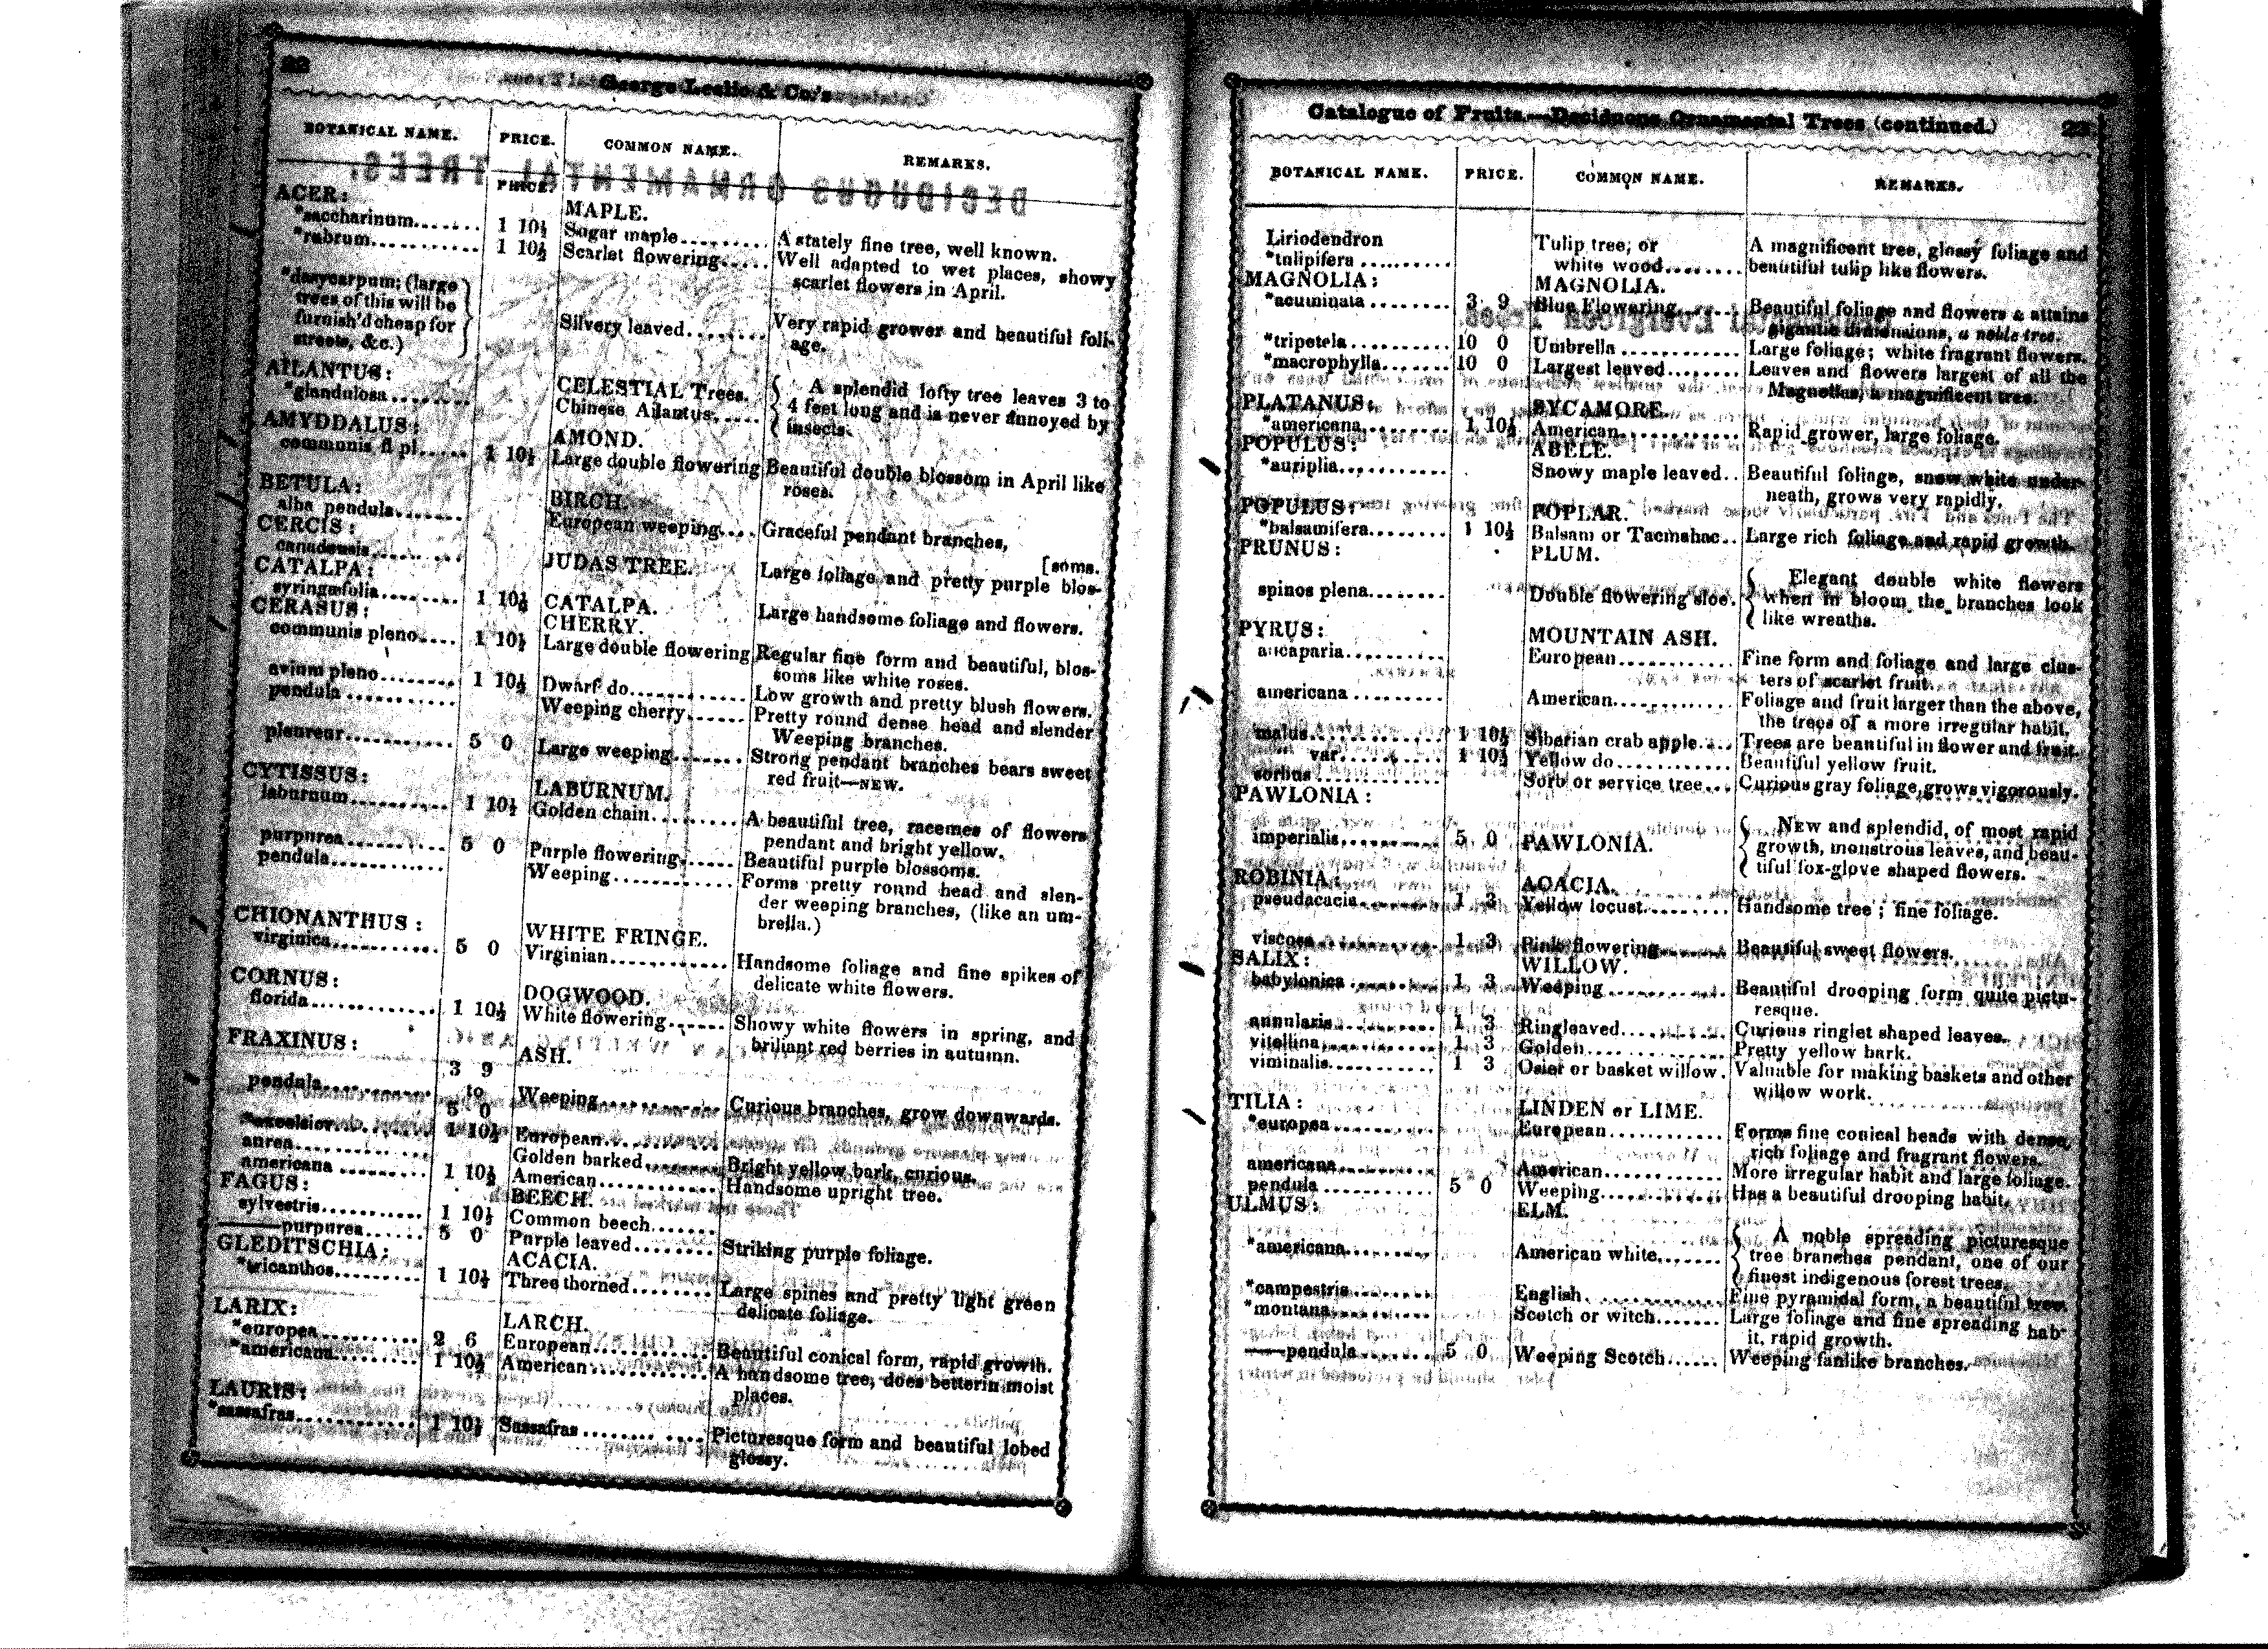 22
George Leslie & Co.'s
BOTANICAL NAME. PRICE. COMMON NAME. REMARKS.
PRICE.
ACER: MAPLE.
*saccharinum....... 1 10½ Sugar maple......... A stately fine tree, well known.
*rubrum........... 1 10½ Scarlet flowering..... Well adapted to wet places, showy
scarlet flowers in April.
*dasycarpum; (large
trees of this will be
furnish'd cheap for Silvery leaved........ Very rapid grower and beautiful foli-
streets, &c.) age.
AILANTUS: CELESTIAL Trees. A splendid lofty tree leaves 3 to
*glandulosa........ Chinese Ailantus..... 4 feet long and is never annoyed by
insects.
AMYDDALUS: AMOND.
communis fl pl..... 1 10½ Large double flowering Beautiful double blossom in April like
roses.
BETULA: BIRCH.
alba pendula....... European weeping.... Graceful pendant branches,
CERCIS: [soms.
canadensis......... JUDAS TREE. Large foliage and pretty purple blos-
CATALPA:
syringæfolia........ 1 10½ CATALPA. Large handsome foliage and flowers.
CERASUS: CHERRY.
communis pleno.... 1 10½ Large double flowering Regular fine form and beautiful, blos-
soms like white roses.
avium pleno........ 1 10½ Dwarf do............ Low growth and pretty blush flowers.
pendula ........... Weeping cherry...... Pretty round dense head and slender
Weeping branches.
pleureur........... 5 0 Large weeping....... Strong pendant branches bears sweet
red fruit—NEW.
CYTISSUS: LABURNUM.
laburnum.......... 1 10½ Golden chain......... A beautiful tree, racemes of flowers
pendant and bright yellow.
purpurea........... 5 0 Purple flowering...... Beautiful purple blossoms.
pendula............ Weeping............ Forms pretty round head and slen-
der weeping branches, (like an um-
brella.)
CHIONANTHUS: WHITE FRINGE.
virginica........... 5 0 Virginian............ Handsome foliage and fine spikes of
delicate white flowers.
CORNUS: DOGWOOD.
florida............. 1 10½ White flowering...... Showy white flowers in spring, and
briliant red berries in autumn.
FRAXINUS: ASH.
3 9
pendula............ to Weeping............ Curious branches, grow downwards.
5 0
*excelsior.......... 1 10½ European...........
aurea.............. Golden barked........ Bright yellow bark, curious.
americana ......... 1 10½ American............ Handsome upright tree.
FAGUS: BEECH.
sylvestris........... 1 10½ Common beech.......
——purpurea...... 5 0 Purple leaved........ Striking purple foliage.
GLEDITSCHIA: ACACIA.
*tricanthos......... 1 10½ Three thorned........ Large spines and pretty light green
delicate foliage.
LARIX: LARCH.
*europea........... 2 6 European............ Beautiful conical form, rapid growth.
*americana......... 1 10½ American............ A handsome tree, does better in moist
places.
LAURIS:
*sassafras........... 1 10½ Sassafras ............ Picturesque form and beautiful lobed
glossy.
Catalogue of Fruits.—Deciduous Ornamental Trees (continued.) 23
BOTANICAL NAME. PRICE. COMMON NAME. REMARKS.
Liriodendron Tulip tree, or A magnificent tree, glossy foliage and
*tulipifera .......... white wood........ beautiful tulip like flowers.
MAGNOLIA: MAGNOLIA.
*acuminata ........ 3 9 Blue Flowering....... Beautiful foliage and flowers & attains
gigantic dimensions, a noble tree.
*tripetela........... 10 0 Umbrella ............ Large foliage; white fragrant flowers.
*macrophylla....... 10 0 Largest leaved........ Leaves and flowers largest of all the
Magnolias, a magnificent tree.
PLATANUS: SYCAMORE.
*americana......... 1 10½ American............ Rapid grower, large foliage.
POPULUS: ABELE.
*auriplia........... Snowy maple leaved.. Beautiful foliage, snow white under-
neath, grows very rapidly.
POPULUS: POPLAR.
*balsamifera........ 1 10½ Balsam or Tacmahac.. Large rich foliage and rapid growth.
PRUNUS: PLUM.
Elegant double white flowers
spinos plena........ Double flowering sloe. when in bloom the branches look
like wreaths.
PYRUS: MOUNTAIN ASH.
aucaparia........... European............ Fine form and foliage and large clus-
ters of scarlet fruit.
americana ......... American............ Foliage and fruit larger than the above,
the trees of a more irregular habit.
malus.............. 1 10½ Siberian crab apple.... Trees are beautiful in flower and fruit.
var......... 1 10½ Yellow do............ Beautiful yellow fruit.
sorbus ............. Sorb or service tree... Curious gray foliage, grows vigorously.
PAWLONIA:
NEW and splendid, of most rapid
imperialis........... 5 0 PAWLONIA. growth, monstrous leaves, and beau-
tiful fox-glove shaped flowers.
ROBINIA: ACACIA.
pseudacacia........ 1 3 Yellow locust........ Handsome tree; fine foliage.
viscosa............. 1 3 Pink flowering....... Beautiful sweet flowers.
SALIX: WILLOW.
babylonica ......... 1 3 Weeping............ Beautiful drooping form quite pictu-
resque.
annularis........... 1 3 Ringleaved........... Curious ringlet shaped leaves.
vitellina............ 1 3 Golden.............. Pretty yellow bark.
viminalis........... 1 3 Osier or basket willow. Valuable for making baskets and other
willow work.
TILIA: LINDEN or LIME.
*europea........... European............ Forms fine conical heads with dense,
rich foliage and fragrant flowers.
americana.......... American............ More irregular habit and large foliage.
pendula ........... 5 0 Weeping............ Has a beautiful drooping habit.
ULMUS: ELM.
A noble spreading picturesque
*americana......... American white....... tree branches pendant, one of our
finest indigenous forest trees.
*campestris......... English.............. Fine pyramidal form, a beautiful tree.
*montana........... Scotch or witch....... Large foliage and fine spreading hab-
it, rapid growth.
——pendula....... 5 0 Weeping Scotch...... Weeping fanlike branches.